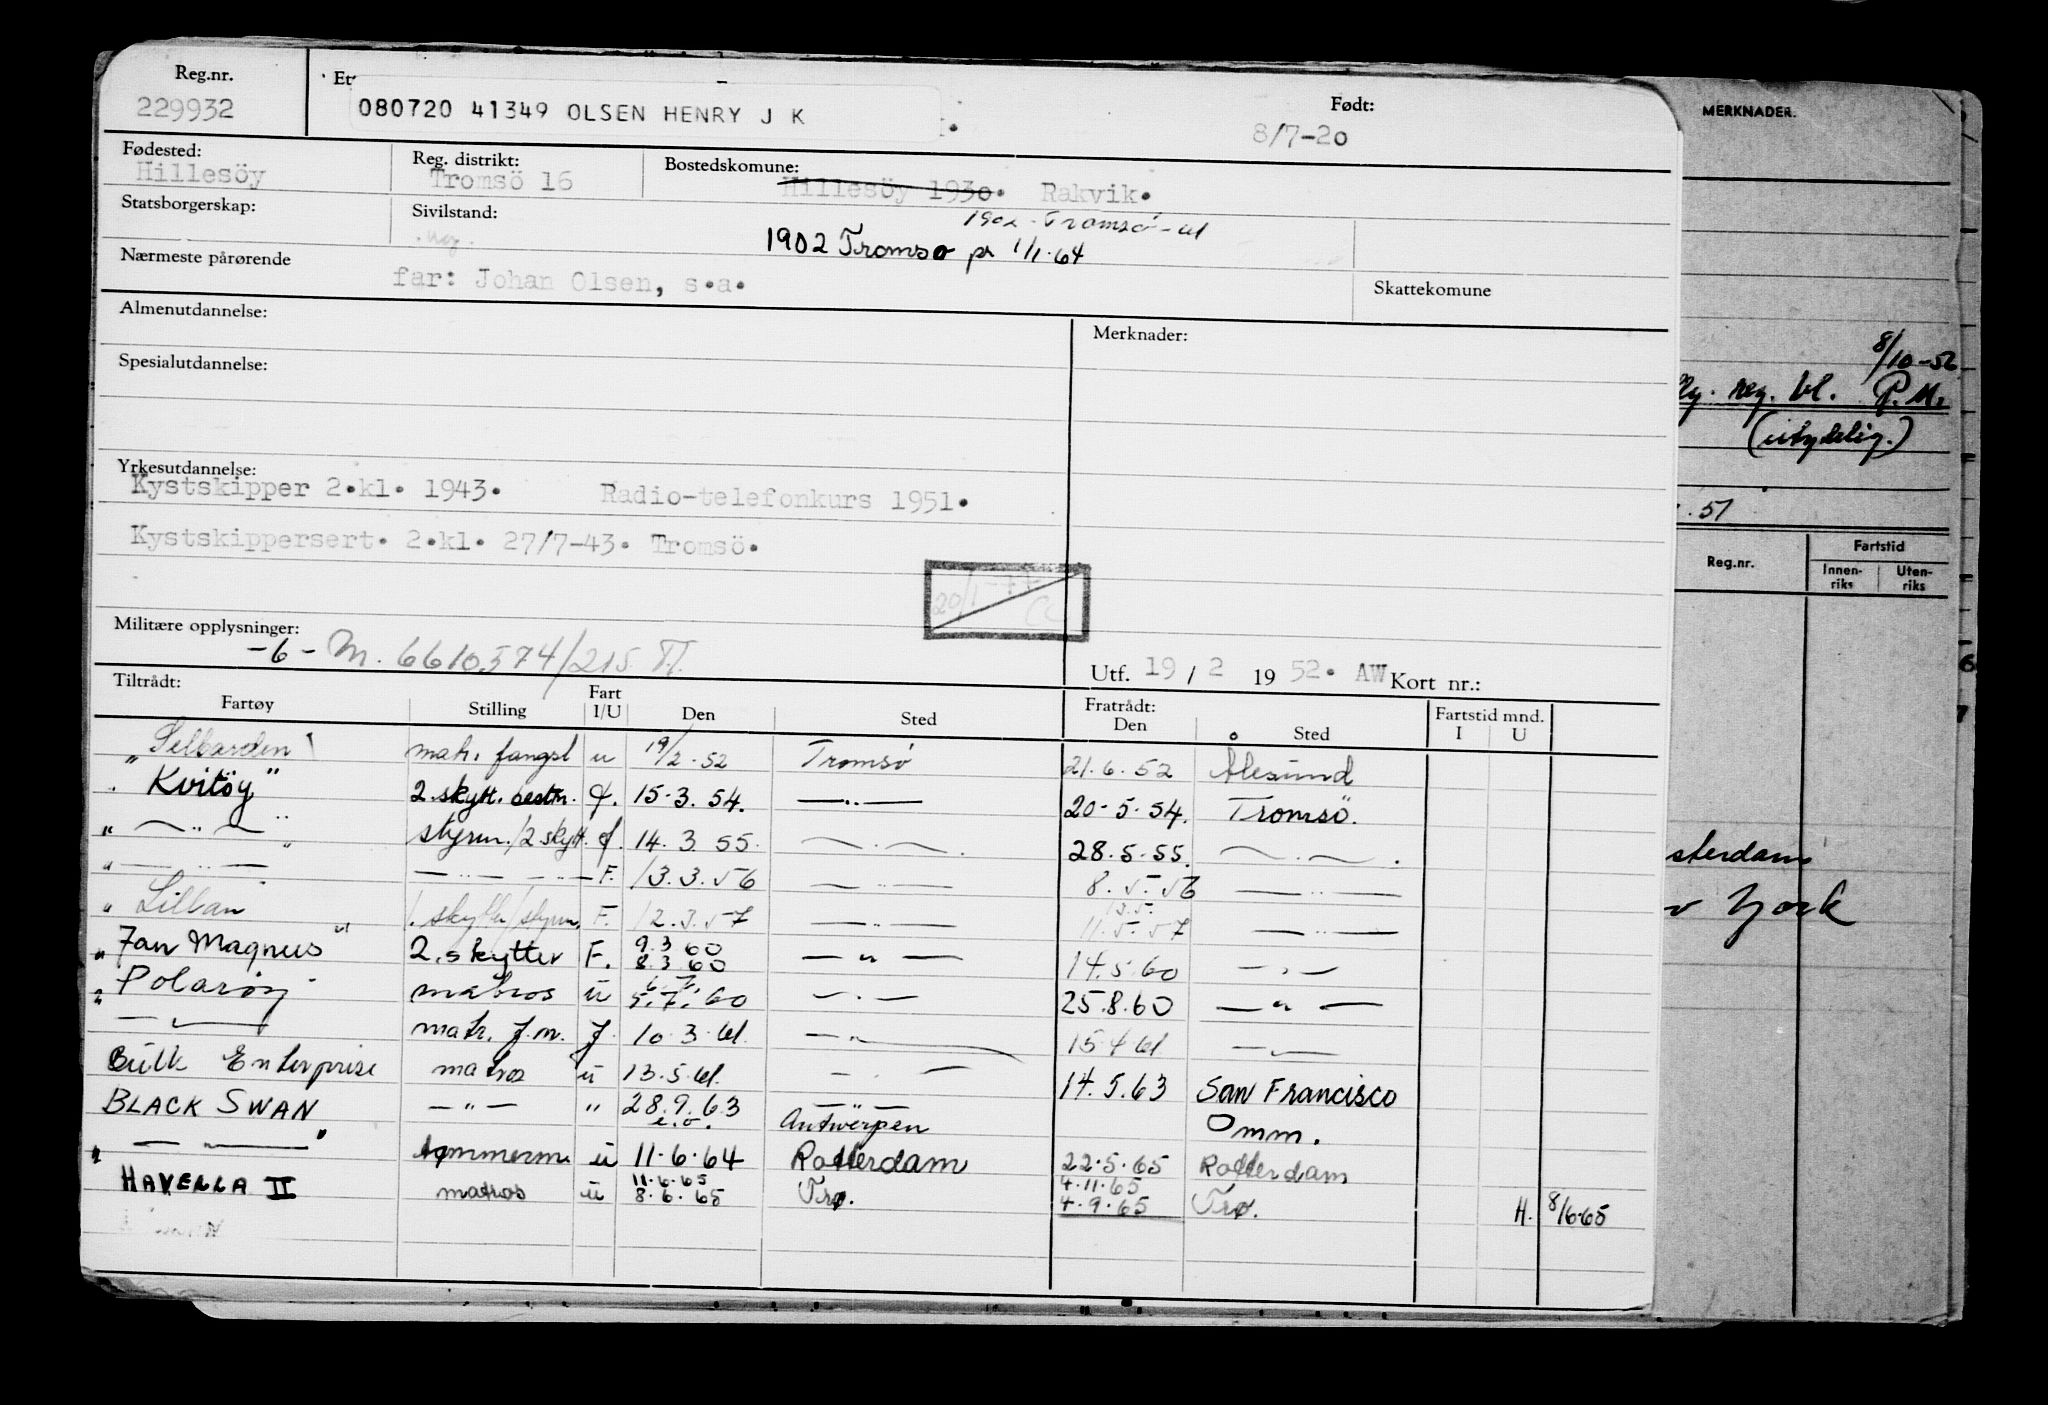 Reg.nr. Et Født: MERKNADER.
229932 080720 41349 OLSEN HENRY J K 8/7-20
Fødested: Reg. distrikt: Bostedskomune:
Hillesöy Tromsö 16 Hillesöy 1930. Rakvik.
Statsborgerskap: Sivilstand: 1902 - Tromsø - 61
1902 Tromsø pr 1/1-64
Nærmeste pårørende
far: Johan Olsen, s.a. Skattekomune
Almenutdannelse: Merknader:
8/10-52
reg. bl. P.M.
Spesialutdannelse:
(utydelig.)
Yrkesutdannelse:
Kystskipper 2.kl. 1943. Radio-telefonkurs 1951. 51
Kystskippersert. 2.kl. 27/7-43. Tromsö.
Reg.nr. Fartstid
Innen-riks Uten-riks
Militære opplysninger:
-6- M. 6610574/215 T.T.
Utf. 19 / 2 19 52. AW Kort nr.:
Tiltrådt: Fratrådt:
Fartøy Stilling Fart I/U Den Sted Den Sted Fartstid mnd. I U
"Selbarden" matr. fangst u 19/2-52 Tromsø 21.6.52 Ålesund
"Kvitöy" 2.skytt. bestm. f. 15-3.54. —..— 20-5-54. Tromsö.
" —..— " styrm./2 skytt. f. 14.3 55. —.—. 28.5-55. —.—.
" —..— —..— —..— F. 13.3.56 —..— 8.5.56 —..—
" Lillian " 1. skytter/styrm. F. 12.3.57 —..— 13.5. 11.5.57 —..—
" Jan Magnus " 2. skytter F. 9.3 60 8.3 60 — " — 14.5.60 — " —
" Polarøy matros u 6.7. 5.7.60 —.— 25.8.60 — " —
— " — matr. f.m. f. 10.3.61 — " — 15.4 61 — " —
Bulk Enterprise matros u 13.5.61. —.— 14.5.63 San Francisco
BLACK SWAN — " — " 28.9.63 e.o. —..— Antwerpen Omm.
" — " — " tømmerm. u 11.6.64 Rotterdam 22.5.65 Rotterdam
HAVELLA II matros u 11.6.65 8.6.65 Trø. 4.11.65 4.9.65 Trø. H. 8/6-65
sterdam
York